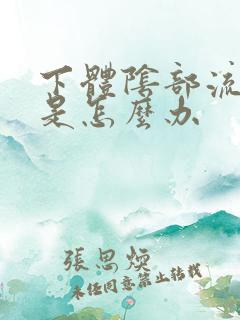 下體陰部流
是怎麼办
張思煐
未任同意禁止转載